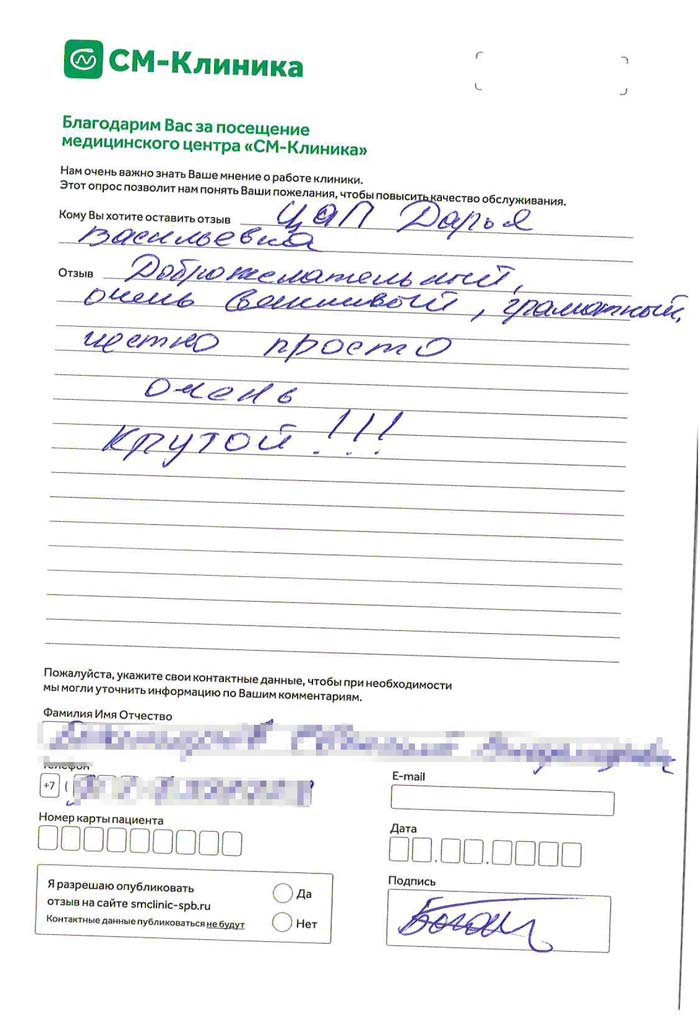 СМ-Клиника
Благодарим Вас за посещение
медицинского центра «СМ-Клиника»
Нам очень важно знать Ваше мнение о работе клиники.
Этот опрос позволит нам понять Ваши пожелания, чтобы повысить качество обслуживания.
Кому Вы хотите оставить отзыв Цап Дарья
Васильевна
Отзыв Доброжелательный,
очень вежливый, грамотный,
честно просто
очень
крутой!!!
Пожалуйста, укажите свои контактные данные, чтобы при необходимости
мы могли уточнить информацию по Вашим комментариям.
Фамилия Имя Отчество
Телефон
+7 (
E-mail
Номер карты пациента
Дата
Я разрешаю опубликовать
отзыв на сайте smclinic-spb.ru
Контактные данные публиковаться не будут
Да
Нет
Подпись